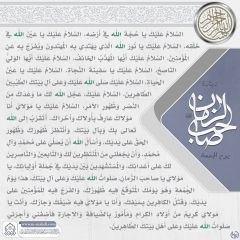 السَّلامُ عَلَيْكَ يا حُجَّةَ الله في أَرْضِهِ، السَّلامُ عَلَيْكَ يا عَيْنَ الله في
خَلْقِهِ، السَّلامُ عَلَيْكَ يا نُورَ الله الَّذي يَهْتَدي بِهِ المُهْتَدونَ وَيُفَرَّجُ بِهِ عَنِ
المُؤْمِنينَ، السَّلامُ عَلَيْكَ أَيُّها المُهَذَّبُ الخائِفُ، السَّلامُ عَلَيْكَ أَيُّها الوَلِيُّ
النّاصِحُ، السَّلامُ عَلَيْكَ يا سَفينَةَ النَّجاةِ، السَّلامُ عَلَيْكَ يا عَيْنَ
الحَياةِ، السَّلامُ عَلَيْكَ صَلّى الله عَلَيْكَ وَعَلى آلِ بَيْتِكَ الطَّيِّبينَ
الطّاهِرينَ، السَّلامُ عَلَيْكَ عَجَّلَ الله لَكَ ما وَعَدَكَ مِنَ
النَّصْرِ وَظُهورِ الأَمْرِ، السَّلامُ عَلَيْكَ يا مَوْلايَ أَنا
مَوْلاكَ عارِفٌ بِأُولاكَ وَأُخْراكَ، أَتَقَرَّبُ إِلى الله
تَعالى بِكَ وَبِآلِ بَيْتِكَ، وَأَنْتَظِرُ ظُهورَكَ وَظُهورَ
الحَقِّ عَلى يَدَيْكَ، وَأَسْأَلُ الله أَنْ يُصَلِّيَ عَلى مُحَمَّدٍ وَآلِ
مُحَمَّدٍ، وَأَنْ يَجْعَلَني مِنَ المُنْتَظِرينَ لَكَ وَالتّابِعينَ وَالنّاصِرينَ
لَكَ عَلى أَعْدائِكَ، وَالمُسْتَشْهَدينَ بَيْنَ يَدَيْكَ في جُمْلَةِ أَوْلِيائِكَ، يا
مَوْلايَ يا صاحِبَ الزَّمانِ صَلَواتُ الله عَلَيْكَ وَعَلى آلِ بَيْتِكَ، هذا يَوْمُ
الجُمُعَةِ وَهُوَ يَوْمُكَ المُتَوَقَّعُ فيهِ ظُهورُكَ، وَالفَرَجُ فيهِ لِلْمُؤْمِنينَ عَلى
يَدَيْكَ، وَقَتْلُ الكافِرينَ بِسَيْفِكَ، وَأَنا يا مَوْلايَ فيهِ ضَيْفُكَ وَجارُكَ، وَأَنْتَ يا
مَوْلايَ كَريمٌ مِنْ أَوْلادِ الكِرامِ وَمَأْمورٌ بِالضِّيافَةِ وَالإِجارَةِ فَأَضِفْني وَأَجِرْني
صَلَواتُ الله عَلَيْكَ وَعَلى أَهْلِ بَيْتِكَ الطّاهِرينَ.
صاحب الزمان
يوم الجمعة